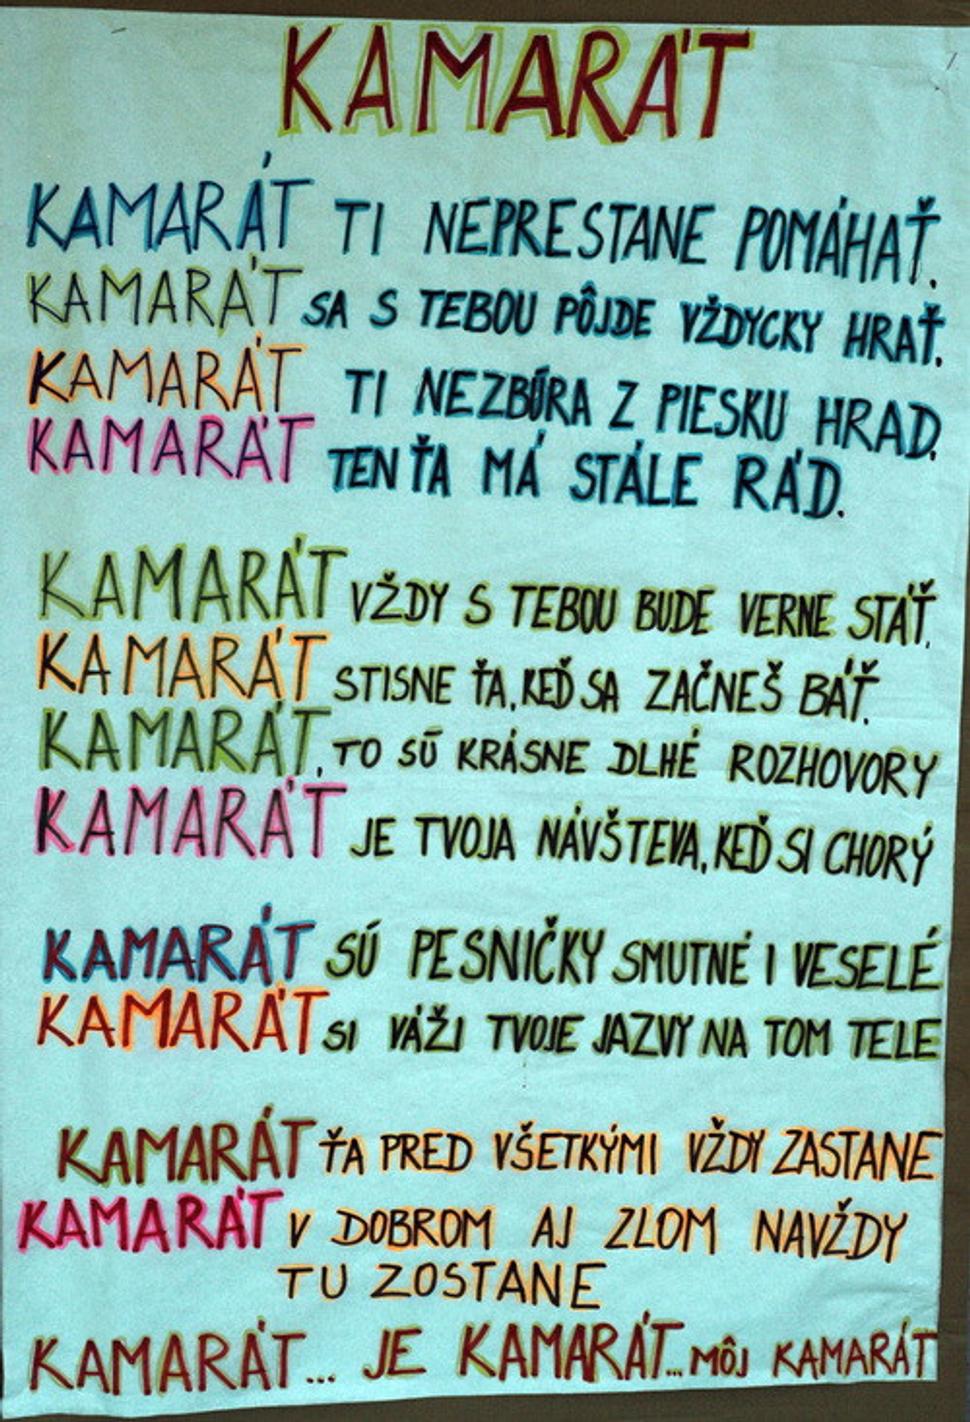 KAMARÁT
KAMARÁT TI NEPRESTANE POMÁHAŤ.
KAMARÁT SA S TEBOU PÔJDE VŽDYCKY HRAŤ.
KAMARÁT TI NEZBÚRA Z PIESKU HRAD.
KAMARÁT TEN ŤA MÁ STÁLE RÁD.
KAMARÁT VŽDY S TEBOU BUDE VERNE STÁŤ.
KAMARÁT STISNE ŤA, KEĎ SA ZAČNEŠ BÁŤ.
KAMARÁT, TO SÚ KRÁSNE DLHÉ ROZHOVORY
KAMARÁT JE TVOJA NÁVŠTEVA, KEĎ SI CHORÝ
KAMARÁT SÚ PESNIČKY SMUTNÉ I VESELÉ
KAMARÁT SI VÁŽI TVOJE JAZVY NA TOM TELE
KAMARÁT ŤA PRED VŠETKÝMI VŽDY ZASTANE
KAMARÁT V DOBROM AJ ZLOM NAVŽDY
TU ZOSTANE
KAMARÁT... JE KAMARÁT... MÔJ KAMARÁT